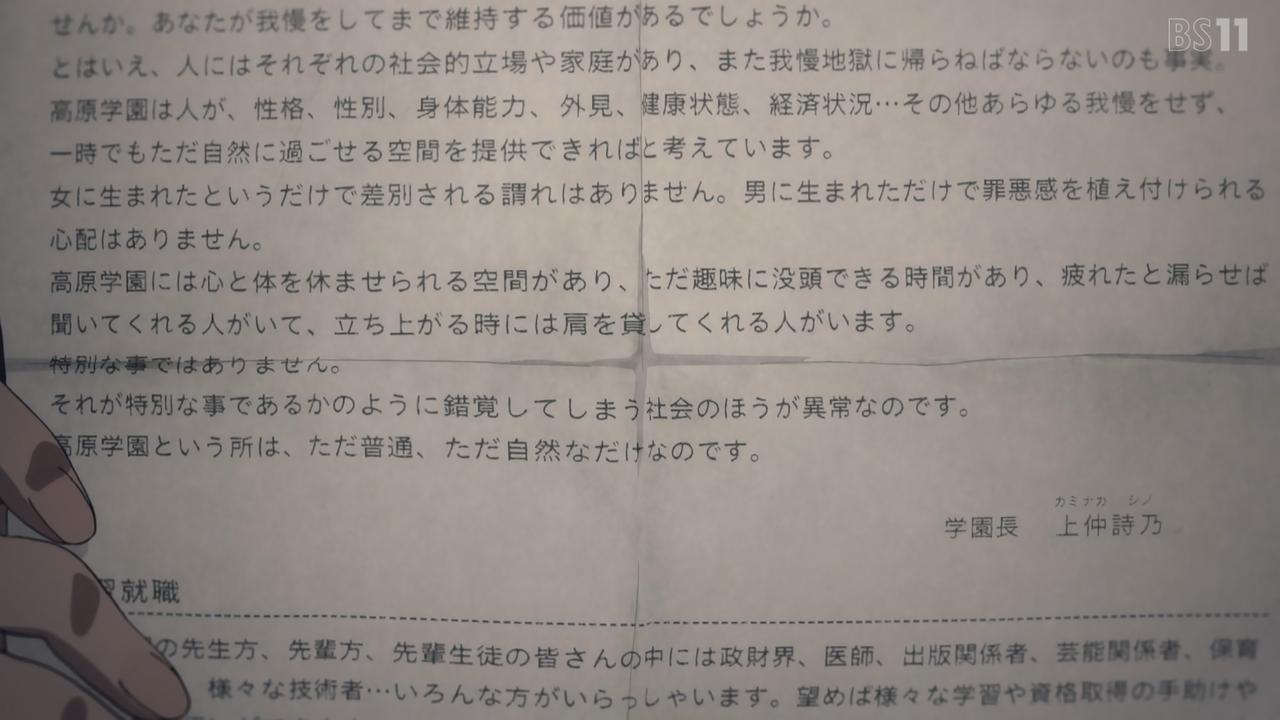 BS11
せんか。あなたが我慢をしてまで維持する価値があるでしょうか。
とはいえ、人にはそれぞれの社会的立場や家庭があり、また我慢地獄に帰らねばならないのも事実。
高原学園は人が、性格、性別、身体能力、外見、健康状態、経済状況…その他あらゆる我慢をせず、
一時でもただ自然に過ごせる空間を提供できればと考えています。
女に生まれたというだけで差別される謂れはありません。男に生まれただけで罪悪感を植え付けられる
心配はありません。
高原学園には心と体を休ませられる空間があり、ただ趣味に没頭できる時間があり、疲れたと漏らせば
聞いてくれる人がいて、立ち上がる時には肩を貸してくれる人がいます。
特別な事ではありません。
それが特別な事であるかのように錯覚してしまう社会のほうが異常なのです。
高原学園という所は、ただ普通、ただ自然なだけなのです。
カミナカ シノ
学園長 上仲詩乃
就職
の先生方、先輩方、先輩生徒の皆さんの中には政財界、医師、出版関係者、芸能関係者、保育
様々な技術者…いろんな方がいらっしゃいます。望めば様々な学習や資格取得の手助けや